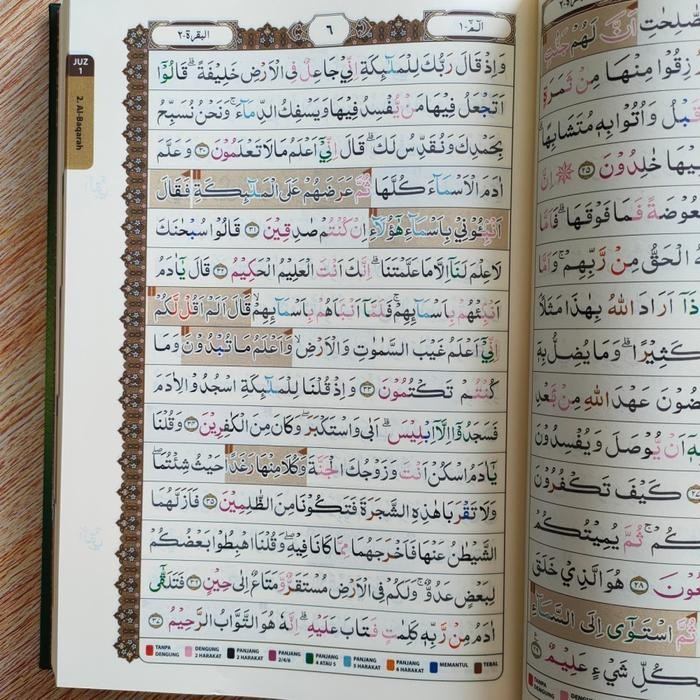 البقرة ٢
٦
الۤمّۤ ١
JUZ
1
2. Al-Baqarah
وَاِذْ قَالَ رَبُّكَ لِلْمَلٰۤىِٕكَةِ اِنِّيْ جَاعِلٌ فِى الْاَرْضِ خَلِيْفَةً ۗ قَالُوْٓا
اَتَجْعَلُ فِيْهَا مَنْ يُّفْسِدُ فِيْهَا وَيَسْفِكُ الدِّمَاۤءَۚ وَنَحْنُ نُسَبِّحُ
بِحَمْدِكَ وَنُقَدِّسُ لَكَ ۗ قَالَ اِنِّيْٓ اَعْلَمُ مَا لَا تَعْلَمُوْنَ ٣٠ وَعَلَّمَ
اٰدَمَ الْاَسْمَاۤءَ كُلَّهَا ثُمَّ عَرَضَهُمْ عَلَى الْمَلٰۤىِٕكَةِ فَقَالَ
اَنْۢبِـُٔوْنِيْ بِاَسْمَاۤءِ هٰٓؤُلَاۤءِ اِنْ كُنْتُمْ صٰدِقِيْنَ ٣١ قَالُوْا سُبْحٰنَكَ
لَا عِلْمَ لَنَآ اِلَّا مَا عَلَّمْتَنَا ۗاِنَّكَ اَنْتَ الْعَلِيْمُ الْحَكِيْمُ ٣٢ قَالَ يٰٓاٰدَمُ
اَنْۢبِئْهُمْ بِاَسْمَاۤىِٕهِمْ ۚ فَلَمَّآ اَنْۢبَاَهُمْ بِاَسْمَاۤىِٕهِمْۙ قَالَ اَلَمْ اَقُلْ لَّكُمْ
اِنِّيْٓ اَعْلَمُ غَيْبَ السَّمٰوٰتِ وَالْاَرْضِۙ وَاَعْلَمُ مَا تُبْدُوْنَ وَمَا
كُنْتُمْ تَكْتُمُوْنَ ٣٣ وَاِذْ قُلْنَا لِلْمَلٰۤىِٕكَةِ اسْجُدُوْا لِاٰدَمَ
فَسَجَدُوْٓا اِلَّآ اِبْلِيْسَۗ اَبٰى وَاسْتَكْبَرَۖ وَكَانَ مِنَ الْكٰفِرِيْنَ ٣٤ وَقُلْنَا
يٰٓاٰدَمُ اسْكُنْ اَنْتَ وَزَوْجُكَ الْجَنَّةَ وَكُلَا مِنْهَا رَغَدًا حَيْثُ شِئْتُمَاۖ
وَلَا تَقْرَبَا هٰذِهِ الشَّجَرَةَ فَتَكُوْنَا مِنَ الظّٰلِمِيْنَ ٣٥ فَاَزَلَّهُمَا
الشَّيْطٰنُ عَنْهَا فَاَخْرَجَهُمَا مِمَّا كَانَا فِيْهِ ۖ وَقُلْنَا اهْبِطُوْا بَعْضُكُمْ
لِبَعْضٍ عَدُوٌّ ۚ وَلَكُمْ فِى الْاَرْضِ مُسْتَقَرٌّ وَّمَتَاعٌ اِلٰى حِيْنٍ ٣٦ فَتَلَقّٰٓى
اٰدَمُ مِنْ رَّبِّهٖ كَلِمٰتٍ فَتَابَ عَلَيْهِ ۗ اِنَّهٗ هُوَ التَّوَّابُ الرَّحِيْمُ ٣٧
TANPA DENGUNG
DENGUNG 2 HARAKAT
PANJANG 2 HARAKAT
PANJANG 2/4/6
PANJANG 4 ATAU 5
PANJANG 5 HARAKAT
PANJANG 6 HARAKAT
MEMANTUL
TEBAL
اَنَّ لَهُمْ
رُزِقُوْا مِنْهَا مِنْ ثَمَرَةٍ
قَبْلُ وَاُتُوْا بِهٖ مُتَشَابِهًا
فِيْهَا خٰلِدُوْنَ ٢٥ اِنَّ
فَمَا فَوْقَهَا ۗ فَاَمَّا
الْحَقُّ مِنْ رَّبِّهِمْ ۚ وَاَمَّا
اَرَادَ اللّٰهُ بِهٰذَا مَثَلًا
كَثِيْرًا ۗ وَمَا يُضِلُّ بِهٖٓ
عَهْدَ اللّٰهِ مِنْۢ بَعْدِ
اَنْ يُّوْصَلَ وَيُفْسِدُوْنَ
كَيْفَ تَكْفُرُوْنَ
ثُمَّ يُمِيْتُكُمْ
٢٨ هُوَ الَّذِيْ خَلَقَ
ثُمَّ اسْتَوٰٓى اِلَى السَّمَاۤءِ
بِكُلِّ شَيْءٍ عَلِيْمٌ ٢٩